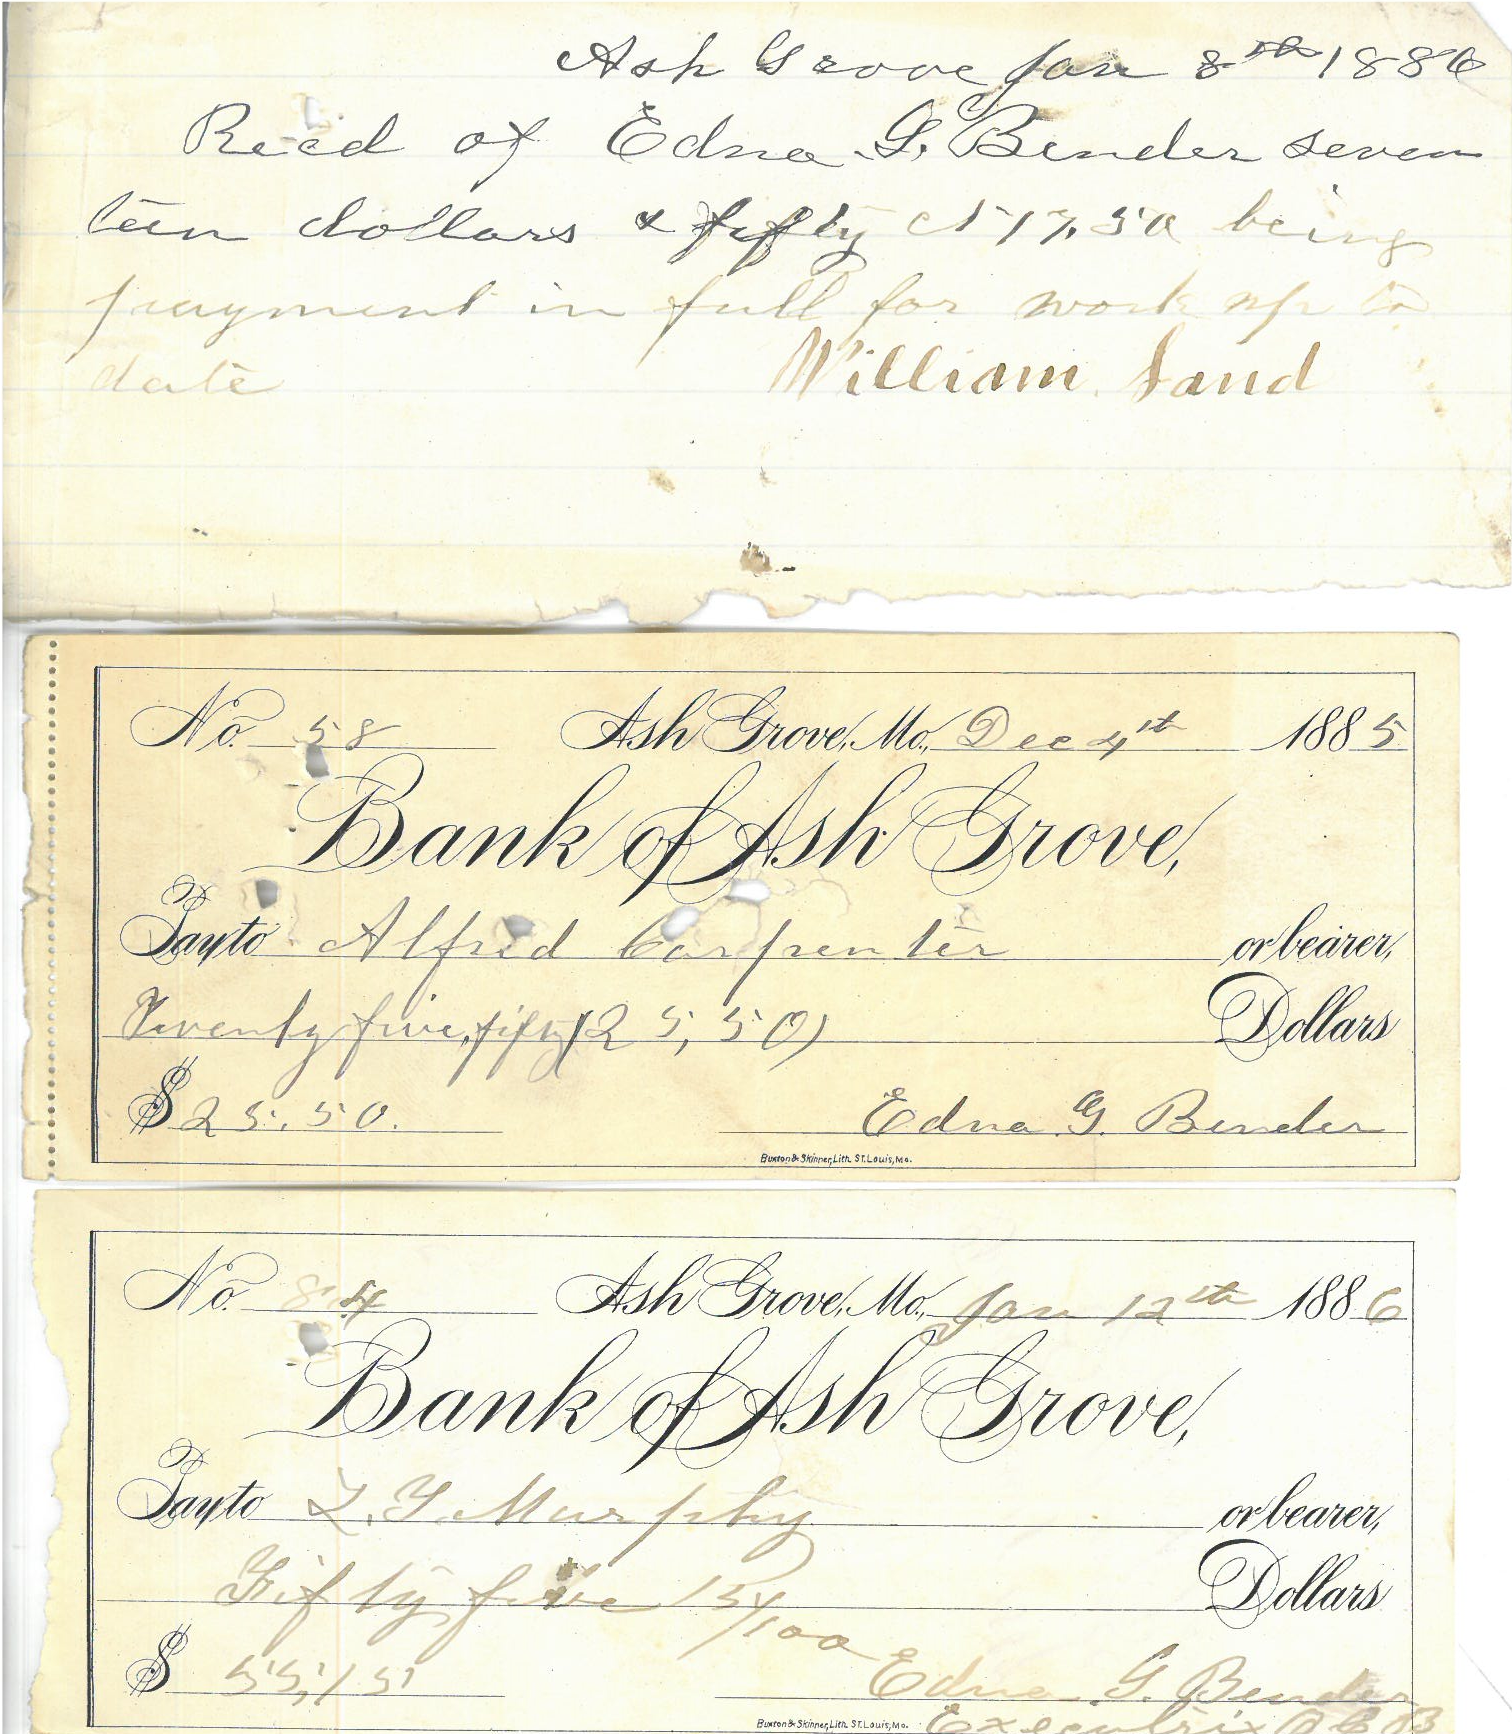 Ash Grove Jan 8th 1886
Recd of Edna G. Bender seven
teen dollars & fifty ct 17,50 being
payment in full for work up to
date William Sand
No. 58 Ash Grove, Mo., Dec 4th 1885
Bank of Ash Grove,
Pay to Alfred Carpenter or bearer,
Twenty five, fifty (25,50) Dollars
$ 25.50.
Edna G. Bender
Buxton & Skinner, Lith. St. Louis, Mo.
No. 84 Ash Grove, Mo., Jan 12th 1886
Bank of Ash Grove,
Pay to Murphy or bearer,
Fifty five 15/100 Dollars
$ 55,15
Edna G. Bender
Executrix
Buxton & Skinner, Lith. St. Louis, Mo.